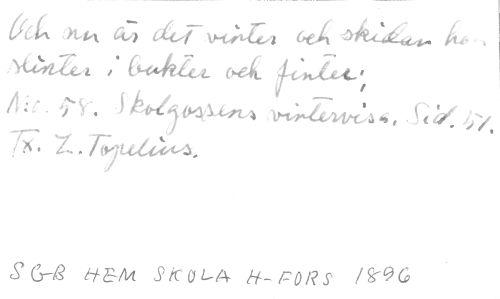 Och nu är det vinter och skidan hon
slinter i bukter och finter;
No. 58. Skolgossens vintervisa. Sid. 51.
Tx. Z. Topelius.
SGB HEM SKOLA H-FORS 1896